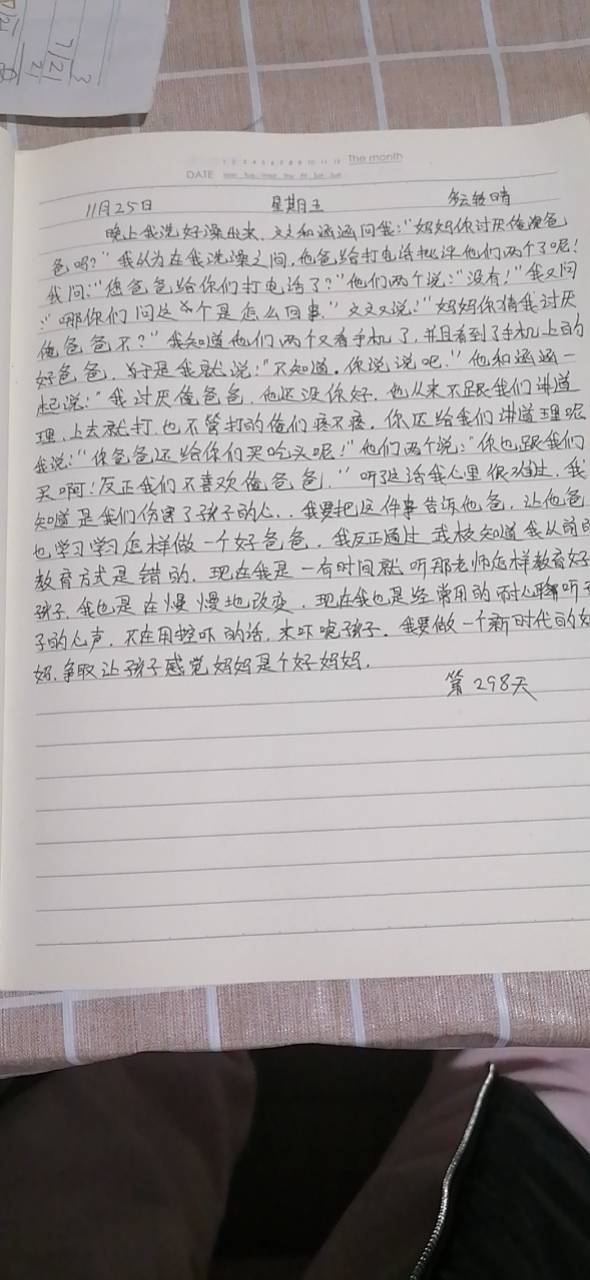 3
7/21
21
1 2 3 4 5 6 7 8 9 10 11 12 the month
DATE Mon Tue Wed Thu Fri Sat Sun
11月25日 星期五 多云转晴
晚上我洗好澡出来,文文和涵涵问我:"妈妈你讨厌俺爸
爸吗?"我认为在我洗澡之间,他爸给打电话批评他们两个了呢!
我问:"恁爸爸给你们打电话了?"他们两个说:"没有!"我又问
:"哪你们问这个是怎么回事."文文又说:"妈妈你猜我讨厌
俺爸爸不?"我知道他们两个又看手机了,并且看到了手机上的
好爸爸.于是我就说:"不知道.你说说吧."他和涵涵一
起说:"我讨厌俺爸爸,他还没你好,他从来不跟我们讲道
理,上去就打,也不管打的俺们疼不疼.你还给我们讲道理呢
我说:"你爸爸还给你们买吃头呢!"他们两个说:"你也跟我们
买啊!反正我们不喜欢俺爸爸."听了这话我心里很难过,我
知道是我们伤害了孩子的心.我要把这件事告诉他爸,让他爸
也学习学习怎样做一个好爸爸.我反正通过 知道我从前的
教育方式是错的.现在我是一有时间就听那老师怎样教育好
孩子.我也是在慢慢地改变.现在我也是经常用的耐心 听孩
子的心声,不在用 吓的话,来吓唬孩子.我要做一个新时代的好妈
妈.争取让孩子感觉妈妈是个好妈妈.
第298天